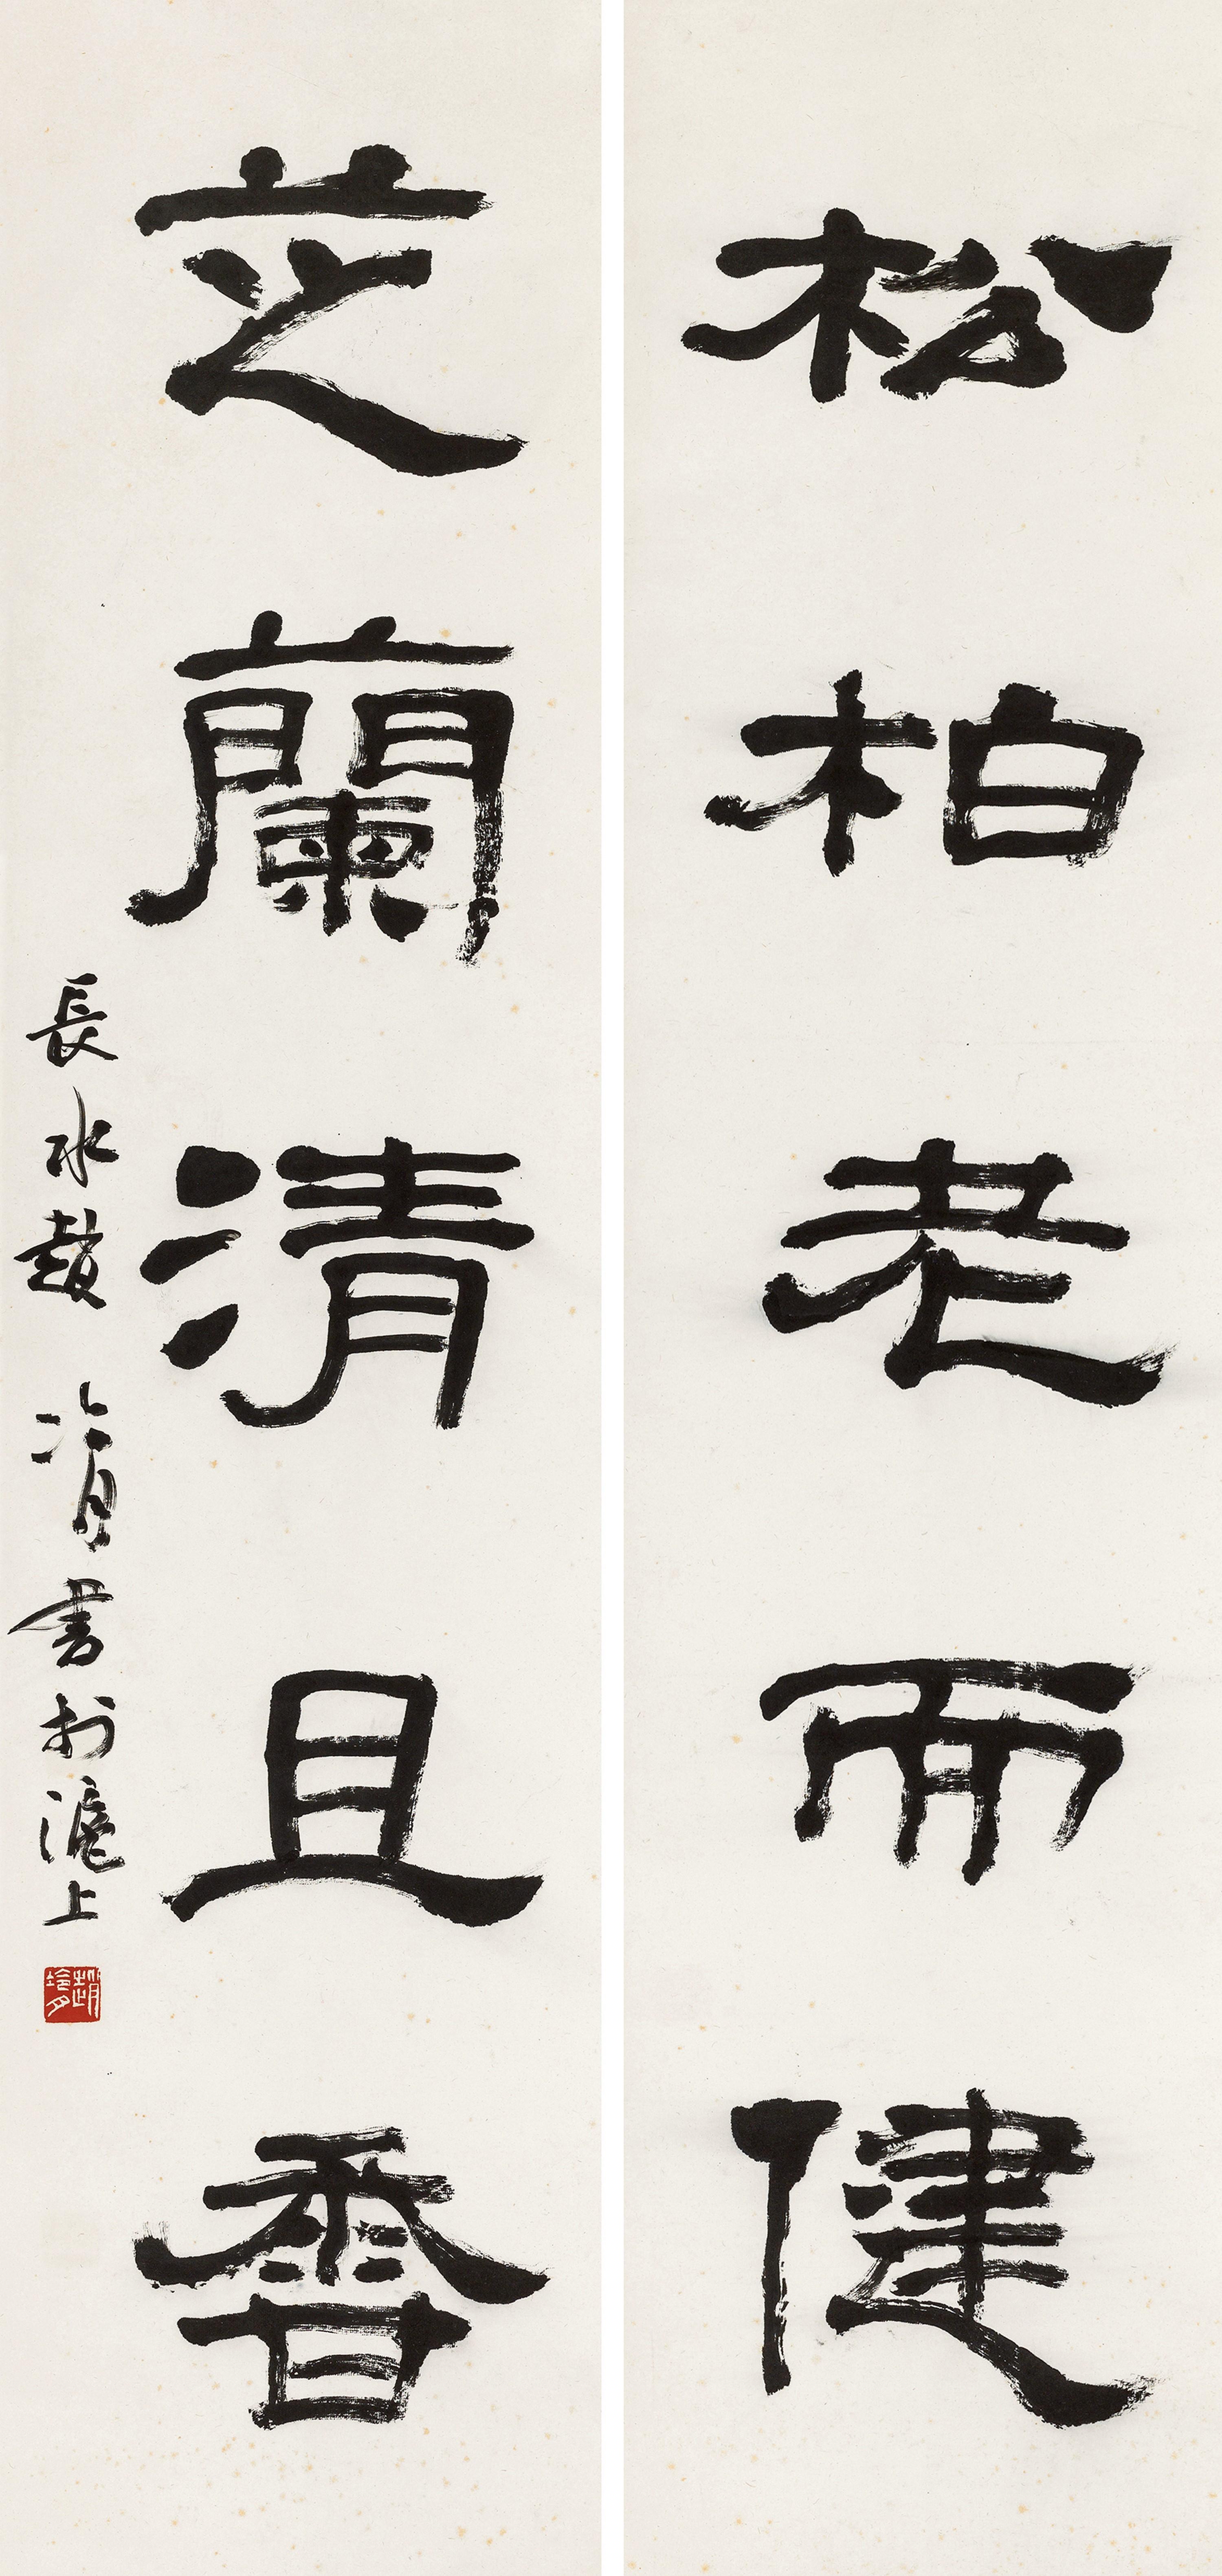 松柏老而健
芝蘭清且香
長水趙冷月書於滬上
趙冷月